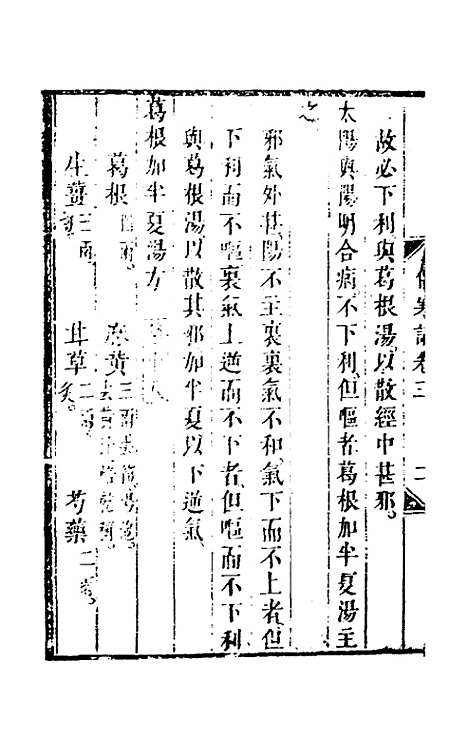 傷寒論卷三
故必下利與葛根湯以散經中甚邪
太陽與陽明合病不下利但嘔者葛根加半夏湯主
之
邪氣外甚陽不主裏裏氣不和氣下而不上者但
下利而不嘔裏氣上逆而不下者但嘔而不下利
與葛根湯以散其邪加半夏以下逆氣
葛根加半夏湯方
葛根四兩 麻黃三兩去節湯泡去黃汁焙乾稱
生薑三兩 甘草二兩炙 芍藥二兩